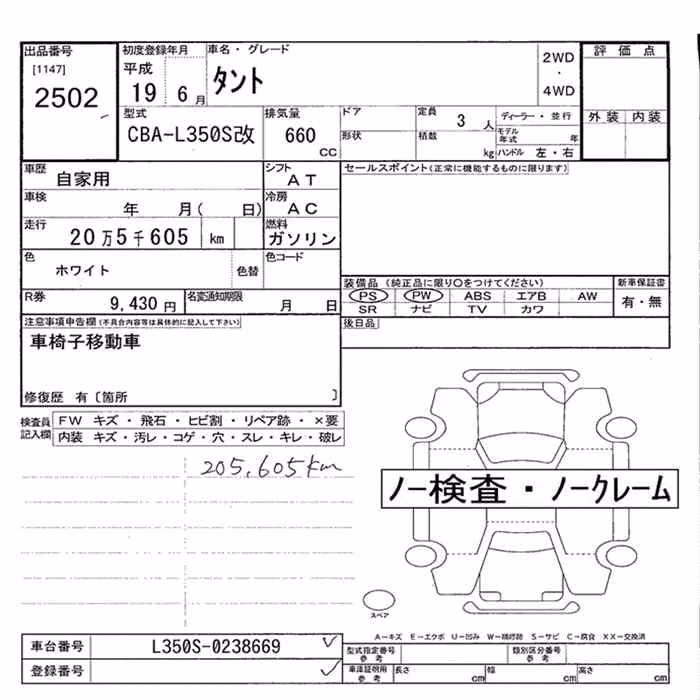 出品番号 初度登録年月 車名・グレード 2WD 評価点
[1147] 平成 タント ・
2502 19 6月 4WD
型式 排気量 ドア 定員 3人 ディーラー・並行 外装 内装
CBA-L350S改 660 cc 形状 積載 kg モデル年式 年
ハンドル 左・右
車歴 自家用 シフト AT セールスポイント(正常に機能するものに限ります)
車検 年 月( 日) 冷房 AC
走行 20万5千605 km 燃料 ガソリン
色 ホワイト 色替 色コード
装備品(純正品に限り○をつけてください) 新車保証書
R券 9,430円 名変通知期限 月 日 PS PW ABS エアB AW 有・無
SR ナビ TV カワ
注意事項申告欄(不具合内容等は具体的に記入して下さい) 後日品
車椅子移動車
修復歴 有〔箇所 〕
検査員記入欄 FW キズ・飛石・ヒビ割・リペア跡・×要
内装 キズ・汚レ・コゲ・穴・スレ・キレ・破レ
205,605km
ノー検査・ノークレーム
スペア
A−キズ E−エクボ U−凹み W−補修跡 S−サビ C−腐食 XX−交換済
車台番号 L350S-0238669 ✓ 型式指定番号 参考 類別区分番号 参考
登録番号 ✓ 車庫証明用 参考 長さ cm 幅 cm 高さ cm